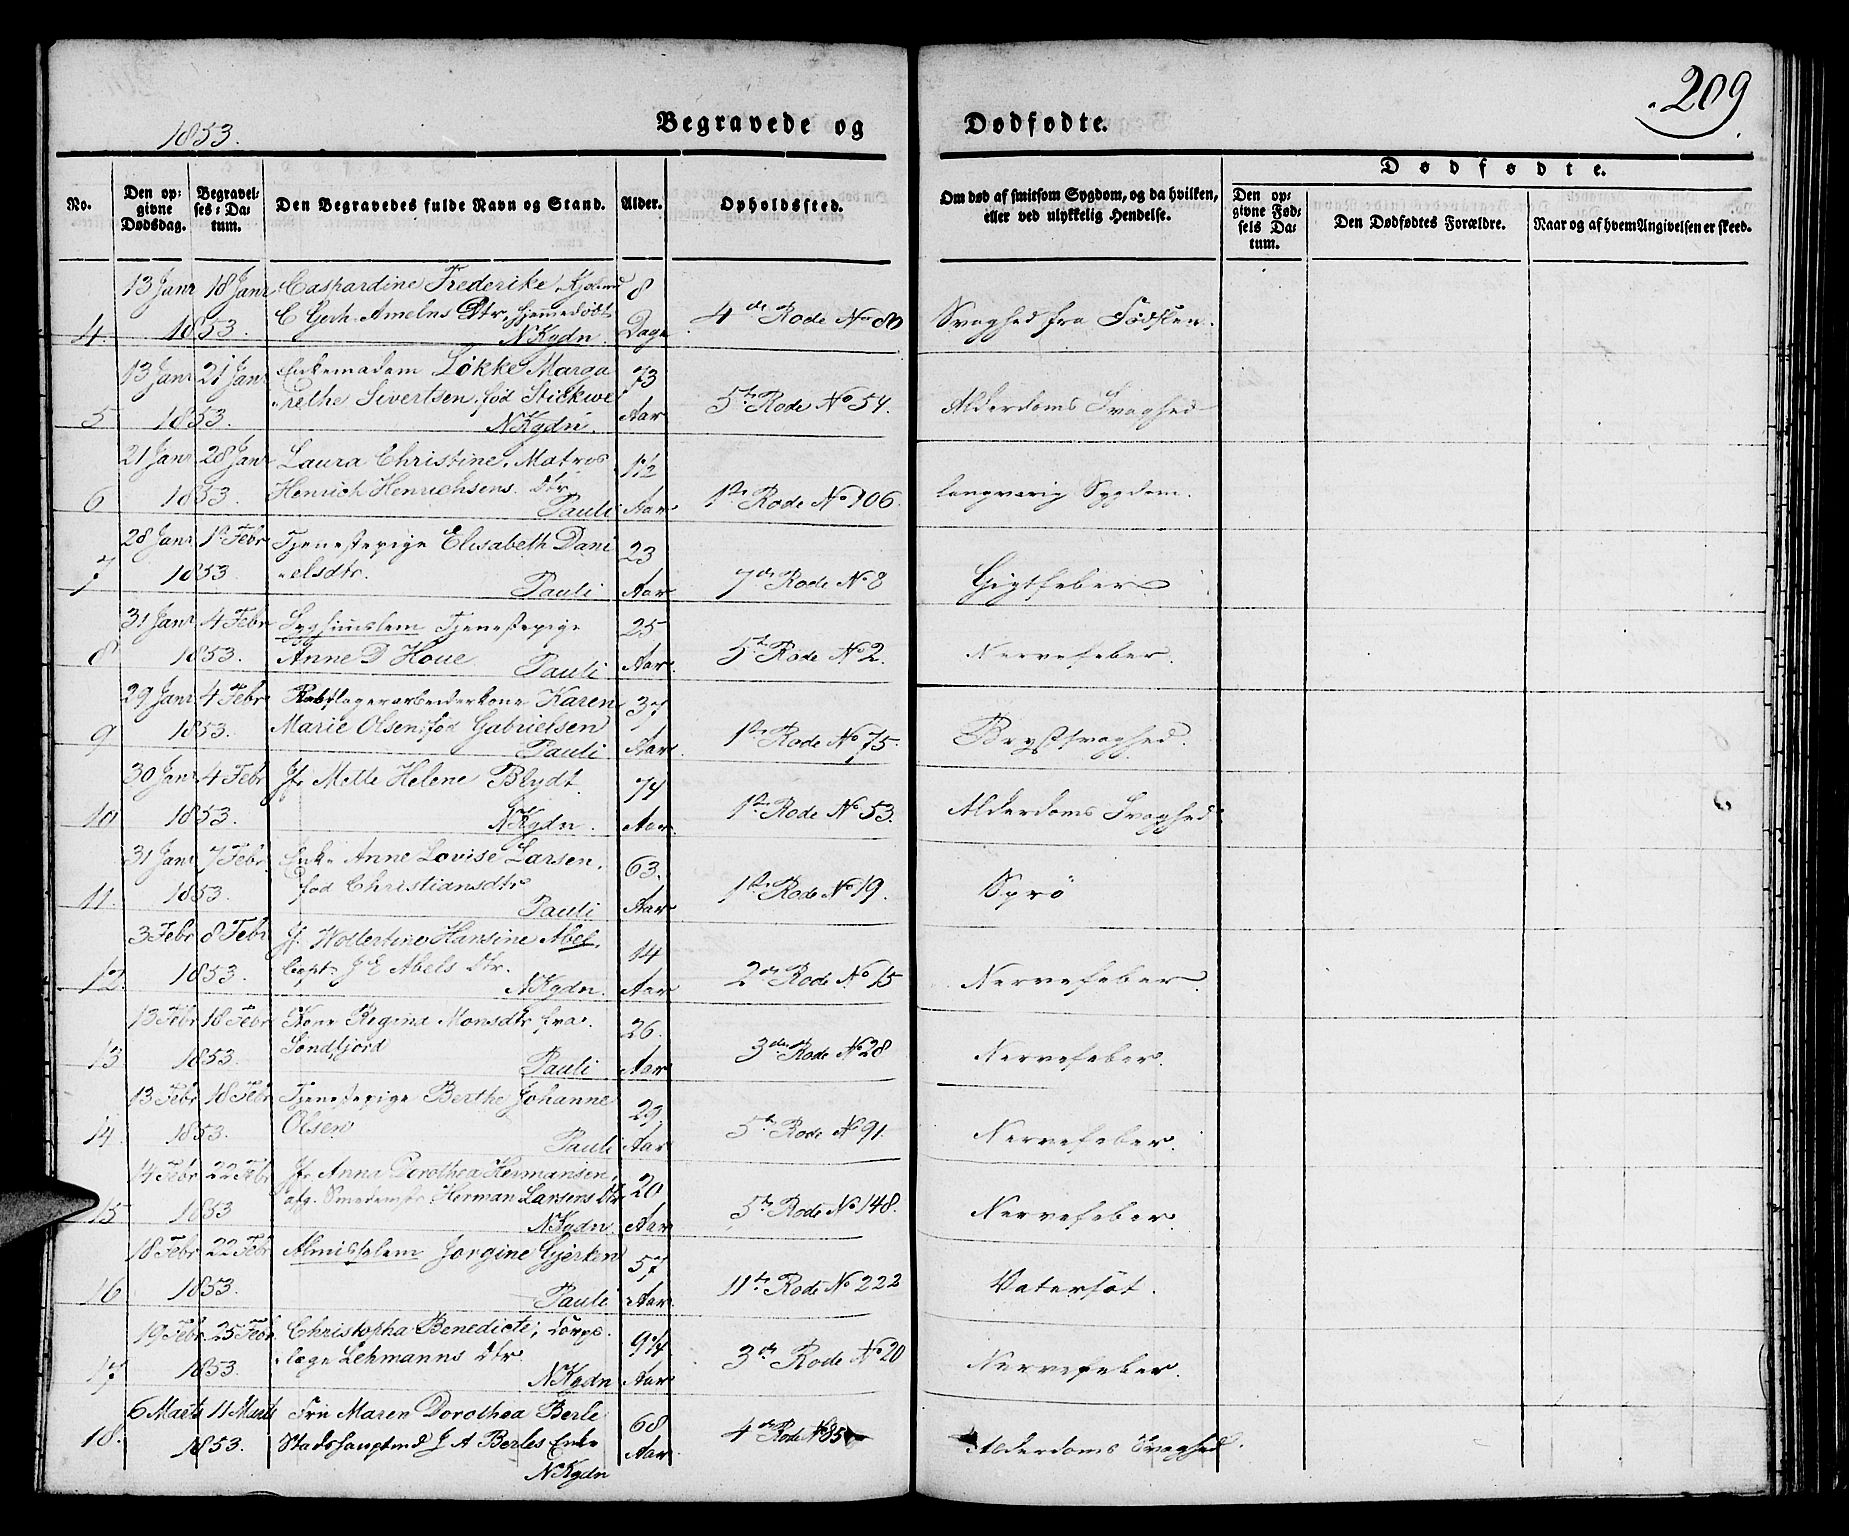 209
1853.
Begravede og Dødfødte.
No.
Den opgivne Dødsdag.
Begravelses-Datum.
Den Begravedes fulde Navn og Stand.
Alder.
Opholdssted.
Om død af smitsom Sygdom, og da hvilken, eller ved ulykkelig Hendelse.
Dødfødte.
Den opgivne Fødsels Datum.
Den Dødfødtes Forældre.
Naar og af hvem Angivelsen er skeed.
13 Janr 18 Janr Caspardine Frederike, 8
C Gerh. Amelns Dtr, hjemmedøbt 4de Rode No 80 Svaghed fra Fødslen.
4 1853. NKgdn. Dage
13 Janr 21 Janr Enkemadam Løkke Marga 73
rethe Sivertsen, fød Stickwe 5te Rode No 54. Alderdoms Svaghed
5 1853. NKgdn. Aar
21 Janr 28 Janr Laura Christine, Matros 1½
Henrich Henrichsens Dtr 1ste Rode No 106. langvarig Sygdom.
6 1853. Pauli Aar
28 Janr 1st Febr Tjenestepige Elisabeth Dani 23
elsdtr. 7de Rode No 8 Gigtfeber
7 1853. Pauli Aar
31 Janr 4 Febr Tjenestepige 25
Anne D Houe 5te Rode No 2. Nervefeber.
8 1853. Pauli Aar.
29 Janr 4 Febr Rebslagerarbeiderkone Karen 37
Marie Olsen, fød Gabrielsen 1ste Rode No 75. Brystsvaghed.
9 1853. Pauli Aar.
30 Janr 4 Febr Jfr Mette Helene Blydt. 74
1ste Rode No 53. Alderdoms Svaghed
10 1853. NKgdn. Aar.
31 Janr 7 Febr. Enke Anne Lovise Larsen, 63.
fød Christiansdtr 1ste Rode No 19. Sprö
11. 1853. Pauli Aar
3 Febr 8 Febr J. Wollertine Hansine Abel, 14
Capt. J E Abels Dtr. 2den Rode No 15 Nervefeber.
12. 1853. NKgdn. Aar
13 Febr 18 Febr Kone Regina Monsdtr fra 26.
Søndfjord 3die Rode No 28 Nervefeber.
13 1853. Pauli Aar
13 Febr 18 Febr Tjenestepige Berthe Johanne 29
Olsen 5te Rode No 91. Nervefeber.
14. 1853. Pauli Aar
14 Febr 22 Febr Jfr Anna Dorothea Hermansen, 20
afg. Smedemstr Herman Larsens Dtr 5te Rode No 148. Nervefeber.
15 1853 NKgdn Aar
18 Febr 22 Febr Almislem Jorgine Gjerken 57
11te Rode No 222 Vatersot.
16 1853. Pauli Aar.
19 Febr 25 Febr. Christopha Benedicte, Corps- 9¼
læge Lehmanns Dtr 3die Rode No 20 Nervefeber.
17 1853. NKgdn Aar.
6 Marts 11 Marts Fru Maren Dorothea Berle 68
Stadshauptmd J A Berles Enke 4de Rode No 85 Alderdoms Svaghed.
18. 1853. NKgdn Aar.